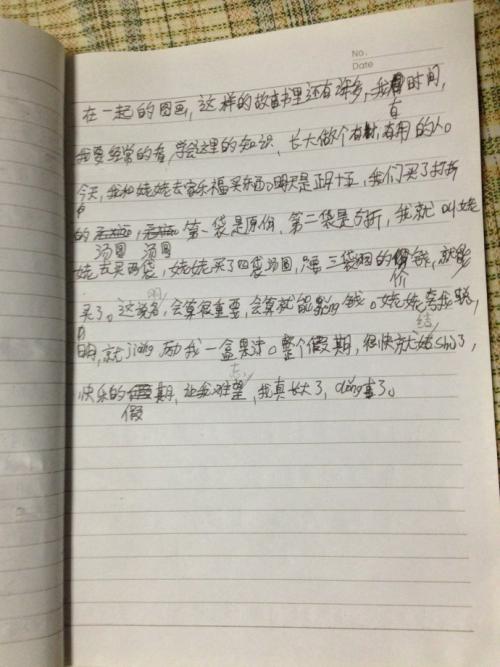 No.
Date
在一起的图画，这样的故事书里还有许多，我有时间，
我要经常的看，学会这里的知识，长大做个有材，有用的人。
今天，我和姥姥去家乐福买东西。明天是正月十五，我们买了打折
的汤圆，汤圆第一袋是原价，第二袋是5折，我就叫姥
姥去买两袋，姥姥买了四袋汤圆，只要三袋的价钱，就能
买了。这说明，会算很重要，会算就能省钱。姥姥夸我聪
明，就jiǎng励我一盒果汁。整个假期，很快就结shù了，
快乐的假期，让我难忘，我真长大了，dǒng事了。